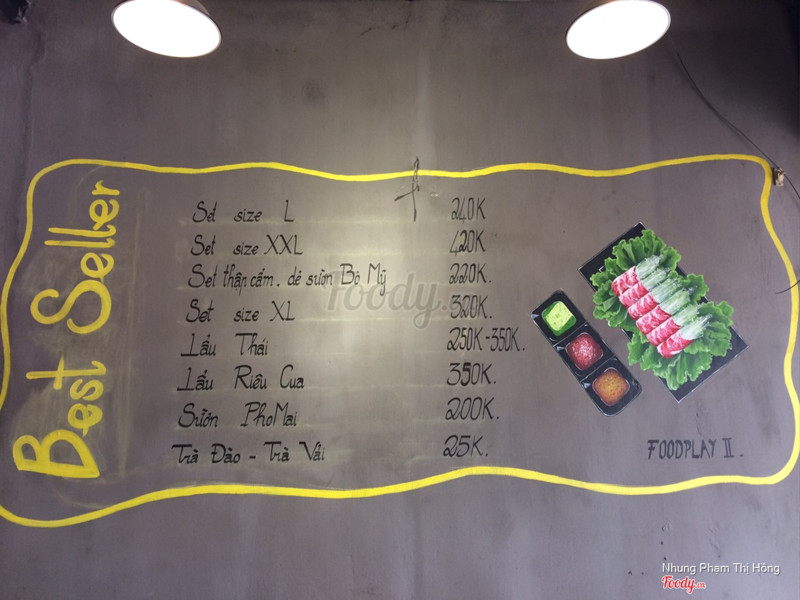 Best Seller
Set size L 240K
Set size XXL 420K
Set thập cẩm. dẻ sườn Bò Mỹ 220K.
Set size XL 320K.
Lẩu Thái 250K-350K.
Lẩu Riêu Cua 350K.
Sườn PhoMai 200K.
Trà Đào - Trà Vải 25K.
FOODPLAY II.
foody.vn
Nhung Phạm Thị Hồng
Foody.vn